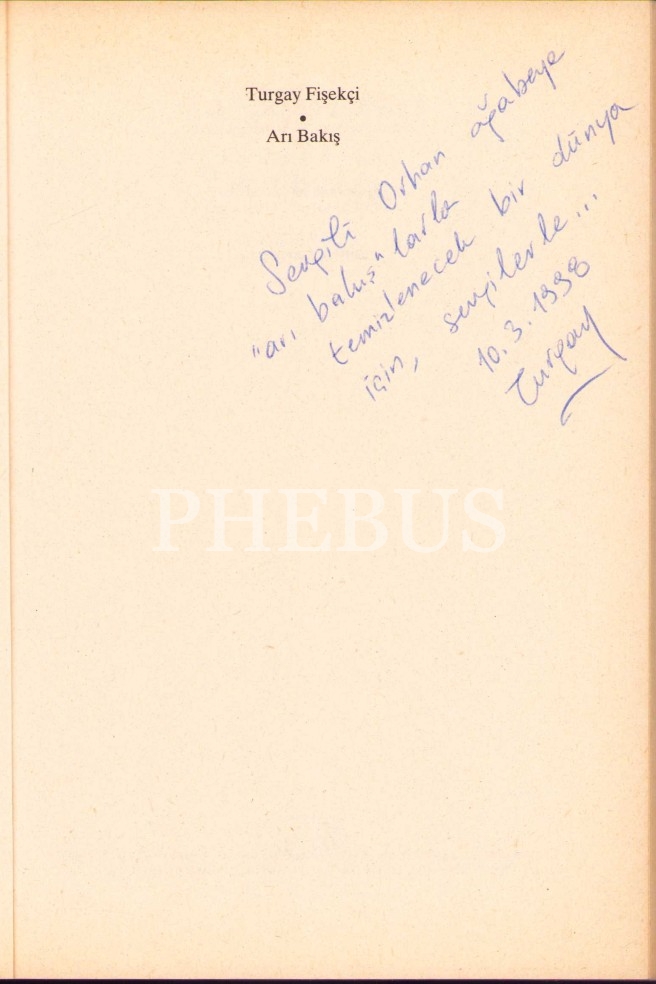 Turgay Fişekçi
•
Arı Bakış
Sevgili Orhan ağabeye
"arı bakış"larla
temizlenecek bir dünya
için, sevgilerle...
10.3.1998
Turgay
PHEBUS